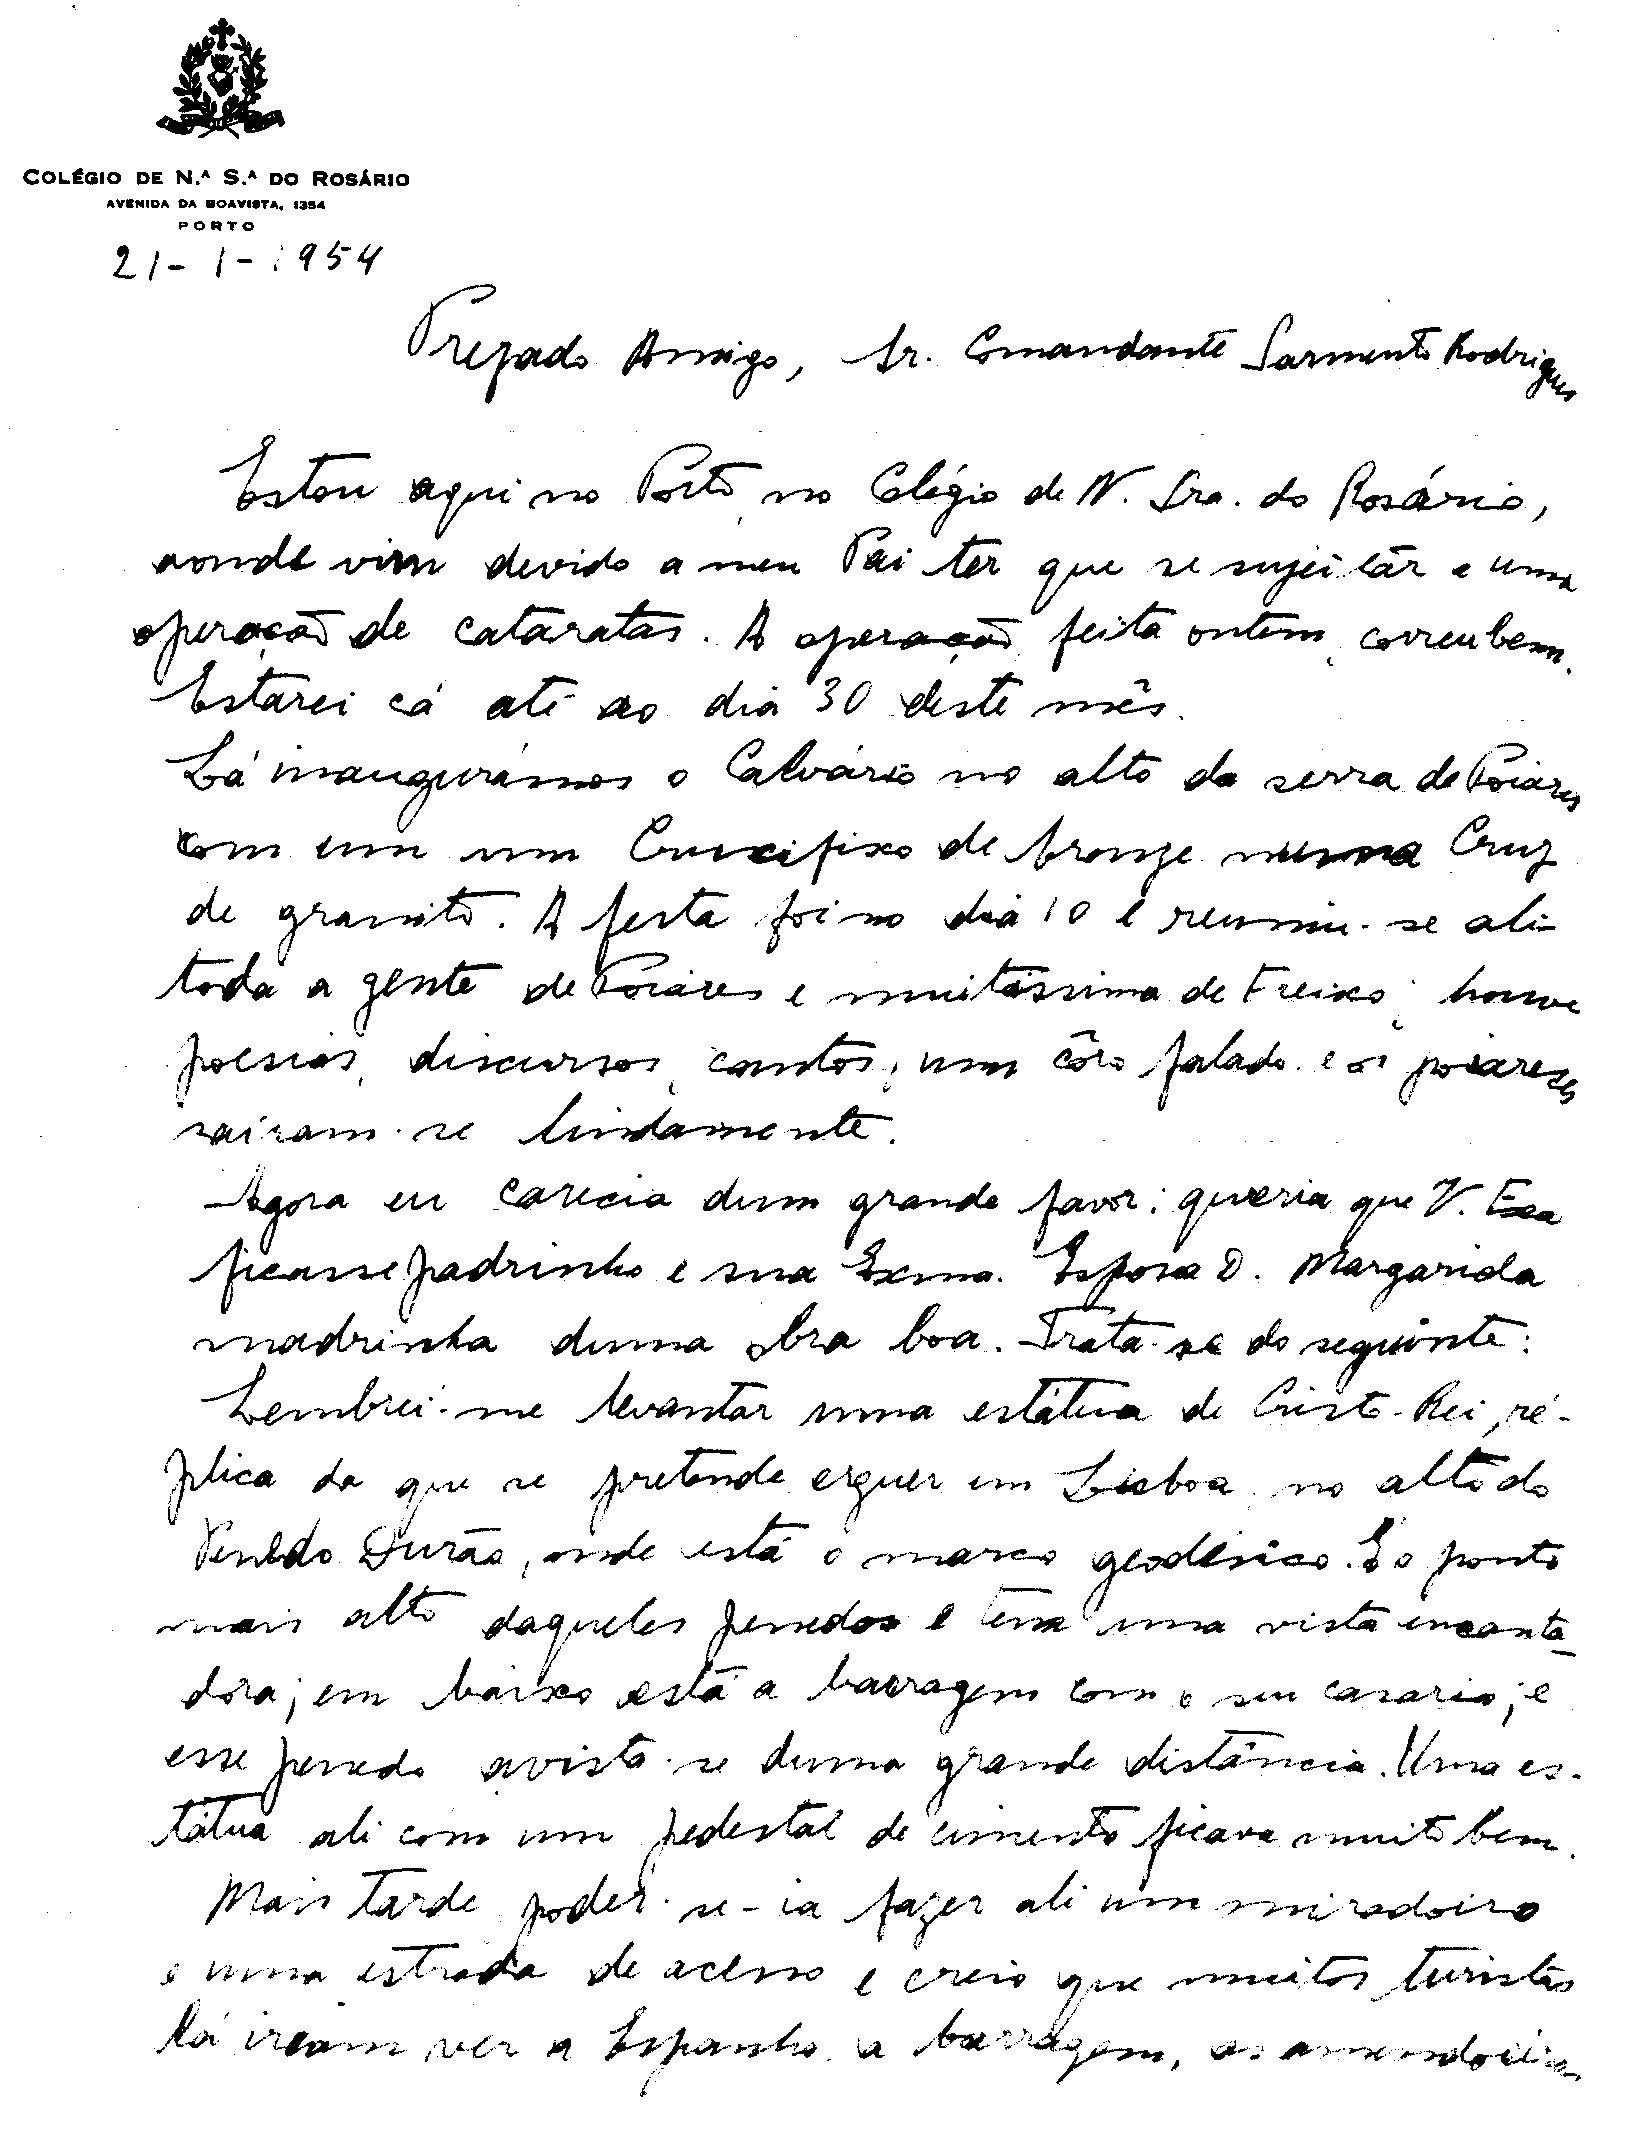 COLÉGIO DE N.ª S.ª DO ROSÁRIO
AVENIDA DA BOAVISTA, 1354
PORTO
21-1-1954
Prezado Amigo, Sr. Comandante Sarmento Rodrigues
Estou aqui no Porto, no Colégio de N. Sra. do Rosário,
aonde vim devido a meu Pai ter que se sujeitar a uma
operação de cataratas. A operação, feita ontem, correu bem.
Estarei cá até ao dia 30 deste mês.
Lá inaugurámos o Calvário no alto da serra de Poiares
com um um Crucifixo de bronze numa Cruz
de granito. A festa foi no dia 10 e reuniu-se ali
toda a gente de Poiares e muitíssima de Freixo; houve
poesias, discursos, cantos, um côro falado e os poiareses
saíram-se lindamente.
Agora eu carecia dum grande favor: queria que V. Exa
ficasse padrinho e sua Exma. Esposa D. Margarida
madrinha duma obra boa. Trata-se do seguinte:
Lembrei-me levantar uma estátua de Cristo-Rei, ré-
plica da que se pretende erguer em Lisboa, no alto do
Penedo Durão, onde está o marco geodésico. É o ponto
mais alto daqueles penedos e tem uma vista encanta-
dora; em baixo está a barragem com o seu casario; e
esse penedo avista-se duma grande distância. Uma es-
tátua ali com um pedestal de cimento ficava muito bem.
Mais tarde poder-se-ia fazer ali um miradoiro
e uma estrada de acesso e creio que muitos turistas
lá iriam ver a Espanha, a barragem, as amendoeiras